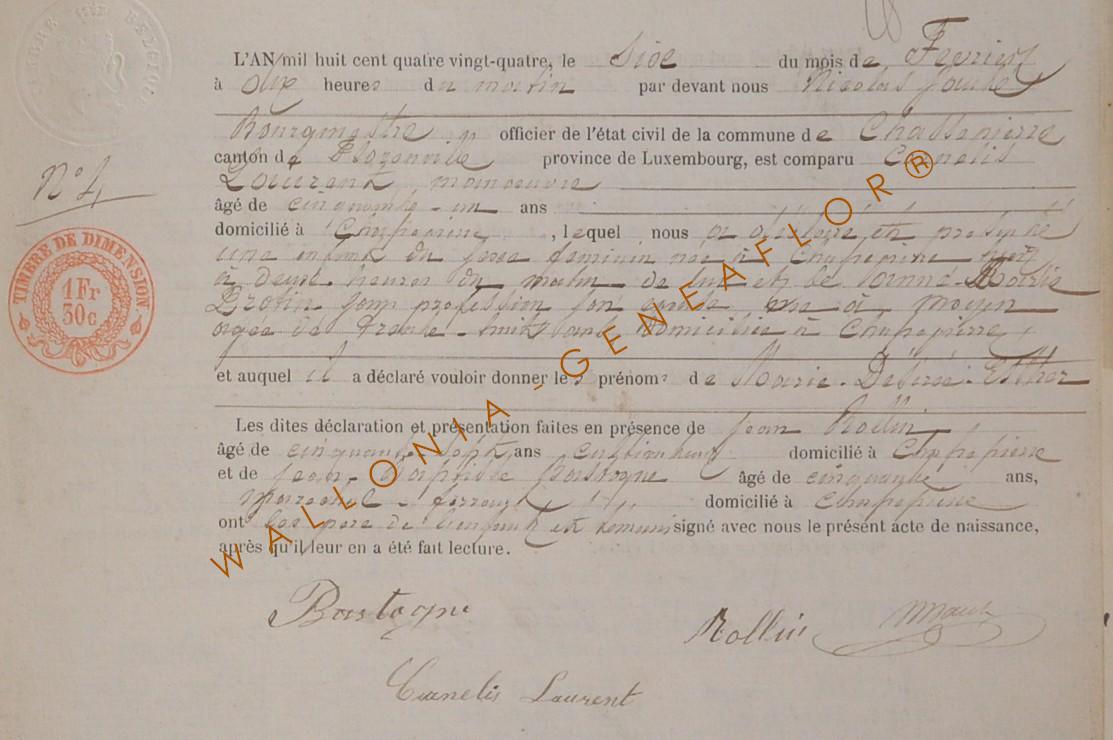 TIMBRE DE BELGIQUE
L'AN mil huit cent quatre vingt-quatre, le Six du mois de Fevrier
à dix heures du matin par devant nous Nicolas
Bourgmestre officier de l'état civil de la commune de Chassepierre
canton de Florenville province de Luxembourg, est comparu Canelis
Laurent, manoeuvre
N° 4
âgé de cinquante-un ans
domicilié à Chassepierre, lequel nous a déclaré et présenté
une enfant du sexe feminin née à Chassepierre
à deux heures du matin de lui et de Marie
sans profession son née à
agée de Trente-huit ans domiciliée à Chassepierre
TIMBRE DE DIMENSION
1 Fr
30c
et auquel il a déclaré vouloir donner les prénoms de Marie-Désirée-Esther
Les dites déclaration et présentation faites en présence de Jean Rollin
âgé de cinquante Sept ans cultivateur domicilié à Chassepierre
et de Jean-Baptiste Bastogne âgé de cinquante ans,
Marechal-ferrant domicilié à Chassepierre
ont les pere de l'enfant et temoins signé avec nous le présent acte de naissance,
après qu'il leur en a été fait lecture.
Bastogne
Rollin
Canelis Laurent
WALLONIA - GENEAFLOR®